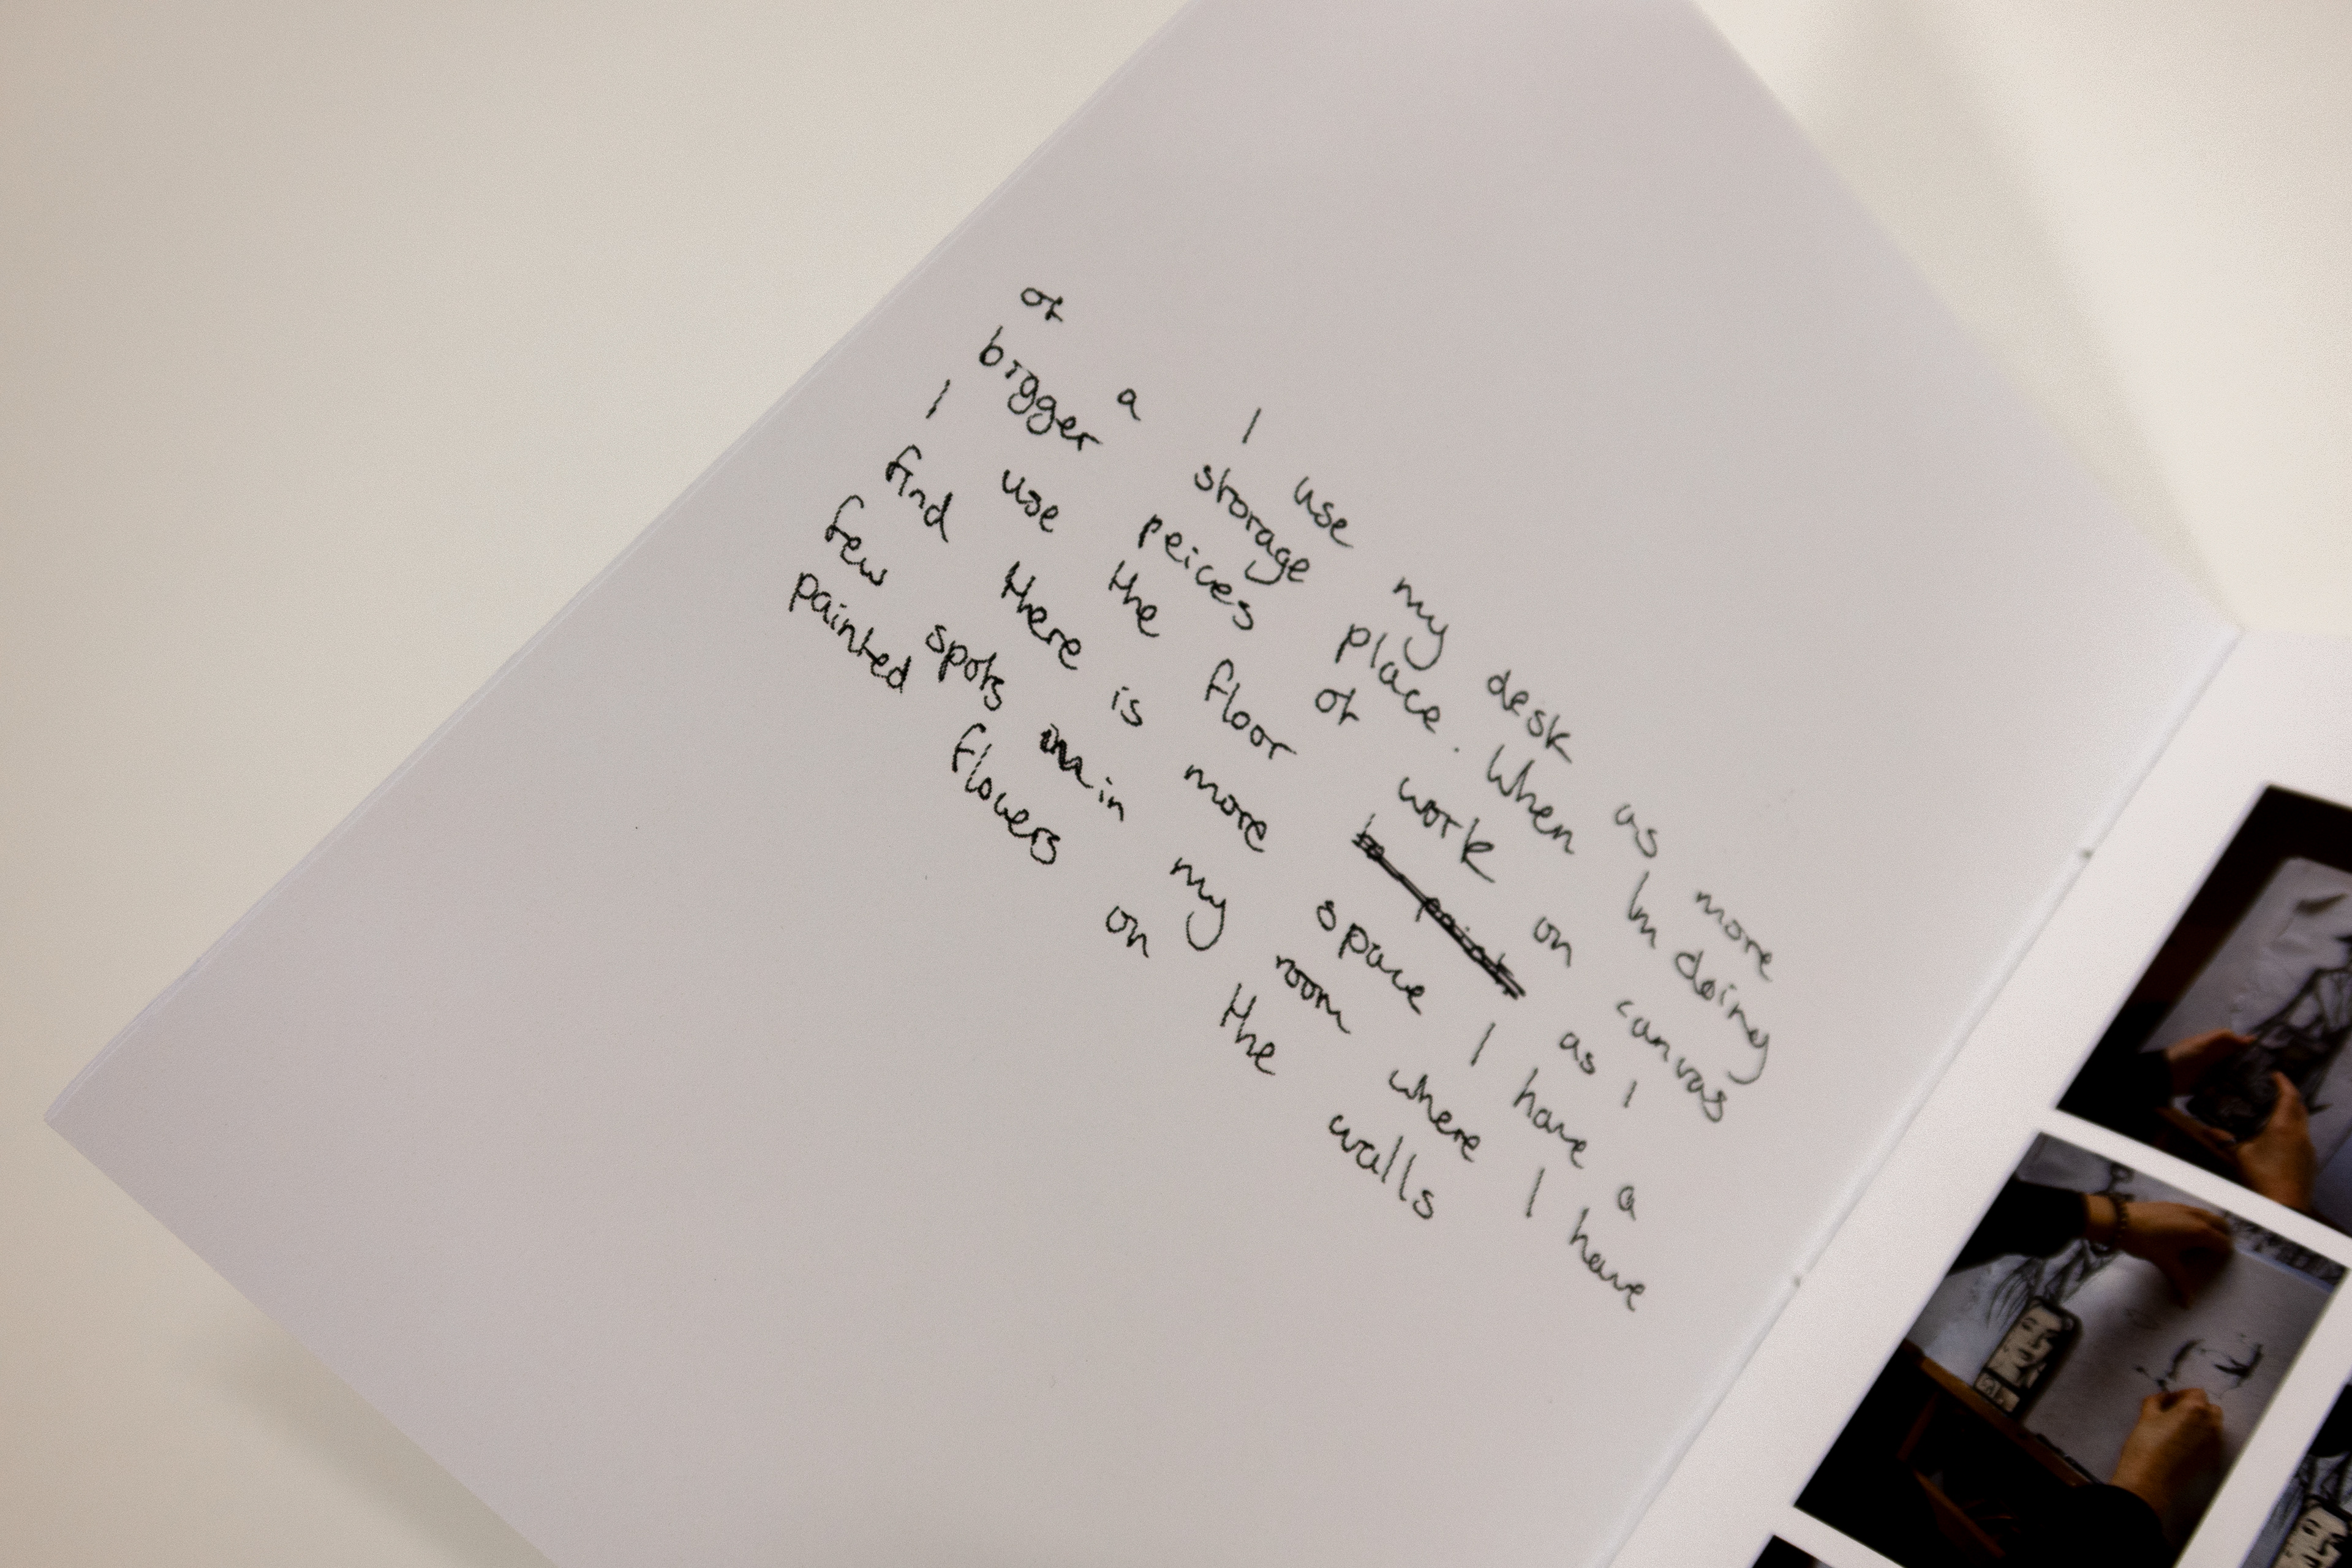 I use my desk as more
of a storage place. When Im doing
bigger peices of work on canvas
I use the floor to paint as I
find there is more space I have a
few spots in my room where I have
painted flowers on the walls